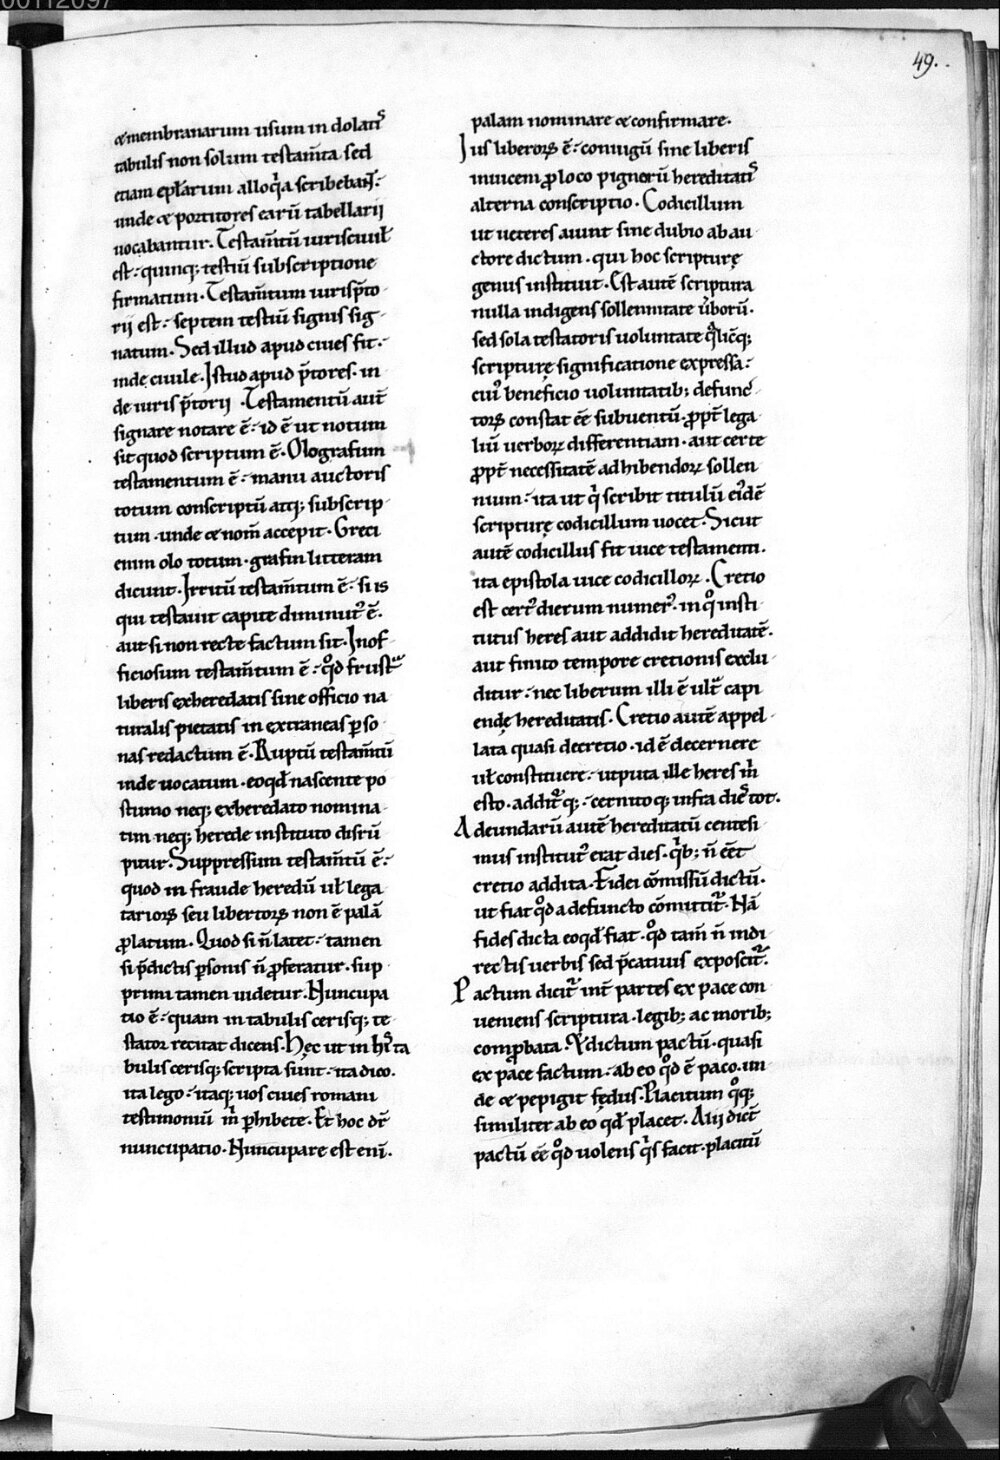 00112097
49.
& membranarum usum in dolatis
tabulis non solum testam̅ta sed
etiam ep̅larum alloq̅a scribebant̅.
unde & portitores earū tabellarii
uocabantur. Testam̅tū iuris ciuil̅
est quinq; testiū subscriptione
firmatum. Testam̅tum iuris p̅to
rii est septem testiū signis sig
natum. Sed illud apud ciues fit.
inde ciuile. Istud apud p̅tores. in
de iuris p̅torii. Testamentū aut̅
signare notare ē. id ē ut notum
sit quod scriptum ē. Olografum
testamentum ē manu auctoris
totum conscriptū atq; subscrip
tum. unde & nom̅ accepit. Greci
enim olo totum. grafin litteram
dicunt. Irritū testam̅tum ē. si is
qui testauit capite diminut᾽ ē.
aut si non recte factum sit. Inof
ficiosum testam̅tum ē. qd̅ frustra
liberis exheredatis sine officio na
turalis pietatis in extraneas p̲so
nas redactum ē. Ruptū testam̅tū
inde uocatum. eo qd̅ nascente po
stumo neq; exheredato nomina
tim neq; herede instituto disrū
pitur. Suppressum testam̅tū ē.
quod in fraude heredū ul̅ lega
tarioꝝ seu libertoꝝ non ē palā
ꝓlatum. Quod si n̅ latet tamen
si p̅dictis p̲sonis n̅ ꝓferatur. sup
primi tamen uidetur. Nuncupa
tio ē quam in tabulis cerisq; te
stator recitat dicens. Hęc ut in his ta
bulis cerisq; scripta sunt. ita dico.
ita lego. itaq; uos ciues romani
testimoniū m̅ p̲hibete. Et hoc dr̅
nuncupatio. Nuncupare est eni̅.
palam nominare & confirmare.
Ius liberoꝝ ē coniugū sine liberis
inuicem ꝓ loco pignorū hereditatis
alterna conscriptio. Codicillum
ut ueteres aiunt sine dubio ab au
ctore dictum. qui hoc scripturę
genus instituit. Est autē scriptura
nulla indigens sollennitate u̅borū.
sed sola testatoris uoluntate q̅licūq;
scripturę significatione expressa.
cui᾽ beneficio uoluntatib; defunc
toꝝ constat ēē subuentū. ꝓpt̅ lega
liū uerboꝝ differentiam. aut certe
ꝓpt̅ necessitatē adhibendoꝝ sollen
nium. ita ut q̅ scribit titulū ei᾽dē
scripturę codicillum uocet. Sicut
autē codicillus fit uice testamenti.
ita epistola uice codicilloꝝ. Cretio
est cert᾽ dierum numer᾽. in qͦ insti
tutus heres aut addidit hereditatē.
aut finito tempore cretionis exclu
ditur. nec liberum illi ē ultᷓ capi
endę hereditatis. Cretio autē appel
lata quasi decretio. id ē decernere
ul̅ constituere. utputa ille heres m̅
esto. addit̅q; cernitoq; infra dies tot.
Adeundarū autē hereditatū centesi
mus institut᾽ erat dies. q̅b; n̅ eēt
cretio addita. Fidei cōmissū dictū.
ut fiat qd̅ a defuncto cōmittit᷑. Nā
fides dicta eo qd̅ fiat. qd̅ tam̅ n̅ indi
rectis uerbis sed p̅catiuis exposcit᷑.
Pactum dicit᷑ int̅ partes ex pace con
ueniens scriptura. legib; ac morib;
comꝓbata. & dictum pactū. quasi
ex pace factum. ab eo qd̅ ē paco. un
de & pepigit fędus. Placitum qͦq;
similiter ab eo qd̅ placet. Alii dic̅t
pactū ēē qd̅ uolens q̅s facit. placitū